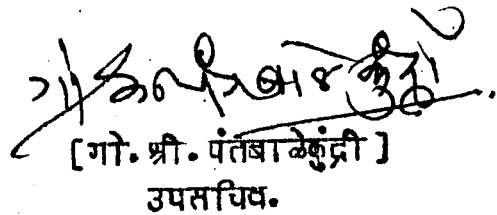 [गो. श्री. पंतबाळेकुंद्री]
उपसचिव.